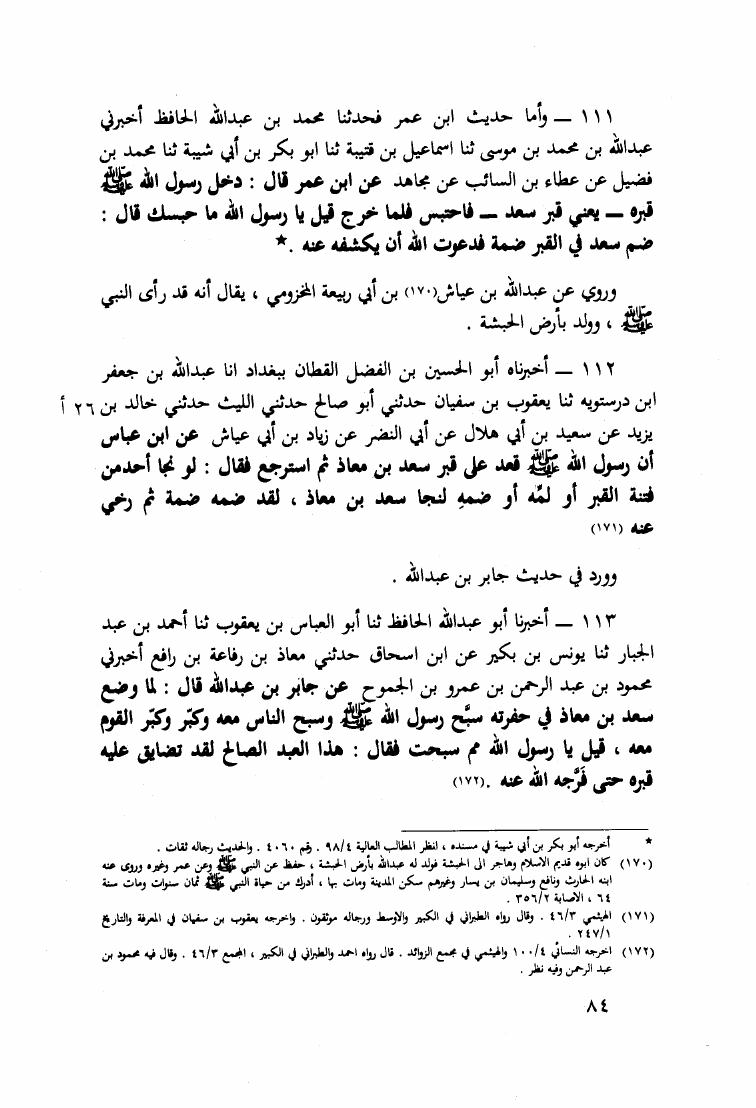 ١١١ ــ وأما حديث ابن عمر فحدثنا محمد بن عبدالله الحافظ أخبرني
عبدالله بن محمد بن موسى ثنا اسماعيل بن قتيبة ثنا ابو بكر بن أبي شيبة ثنا محمد بن
فضيل عن عطاء بن السائب عن مجاهد عن ابن عمر قال : دخل رسول الله ﷺ
قبره ــ يعني قبر سعد ــ فاحتبس فلما خرج قيل يا رسول الله ما حبسك قال :
ضم سعد في القبر ضمة فدعوت الله أن يكشفه عنه .★
وروي عن عبدالله بن عياش(١٧٠) بن أبي ربيعة المخزومي ، يقال أنه قد رأى النبي
ﷺ ، وولد بأرض الحبشة .
١١٢ ــ أخبرناه أبو الحسين بن الفضل القطان ببغداد انا عبدالله بن جعفر
ابن درستويه ثنا يعقوب بن سفيان حدثني أبو صالح حدثني الليث حدثني خالد بن ٢٦ أ
يزيد عن سعيد بن أبي هلال عن أبي النضر عن زياد بن أبي عياش عن ابن عباس
أن رسول الله ﷺ قعد على قبر سعد بن معاذ ثم استرجع فقال : لو نجا أحدمن
فتنة القبر أو لمِّه أو ضمهِ لنجا سعد بن معاذ ، لقد ضمه ضمة ثم رخي
عنه (١٧١)
وورد في حديث جابر بن عبدالله .
١١٣ ــ أخبرنا أبو عبدالله الحافظ ثنا أبو العباس بن يعقوب ثنا أحمد بن عبد
الجبار ثنا يونس بن بكير عن ابن اسحاق حدثني معاذ بن رفاعة بن رافع أخبرني
محمود بن عبد الرحمن بن عمرو بن الجموح عن جابر بن عبدالله قال : لما وضع
سعد بن معاذ في حفرته سبَّح رسول الله ﷺ وسبح الناس معه وكبّر وكبّر القوم
معه ، قيل يا رسول الله مم سبحت فقال : هذا العبد الصالح لقد تضايق عليه
قبره حتى فَرَّجه الله عنه .(١٧٢)
★ أخرجه أبو بكر بن أبي شيبة في مسنده ، انظر المطالب العالية ٩٨/٤ . رقم ٤٠٦٠ . والحديث رجاله ثقات .
(١٧٠) كان ابوه قديم الاسلام وهاجر الى الحبشة فولد له عبدالله بأرض الحبشة ، حفظ عن النبي ﷺ وعن عمر وغيره وروى عنه
ابنه الحارث ونافع وسليمان بن يسار وغيرهم سكن المدينة ومات بها ، أدرك من حياة النبي ﷺ ثمان سنوات ومات سنة
٦٤ ، الاصابة ٣٥٦/٢ .
(١٧١) الهيثمي ٤٦/٣ . وقال رواه الطبراني في الكبير والاوسط ورجاله موثقون . واخرجه يعقوب بن سفيان في المعرفة والتاريخ
٢٤٧/١ .
(١٧٢) اخرجه النسائي ١٠٠/٤ والهيثمي في مجمع الزوائد . قال رواه احمد والطبراني في الكبير ، المجمع ٤٦/٣ . وقال فيه محمود بن
عبد الرحمن وفيه نظر .
٨٤